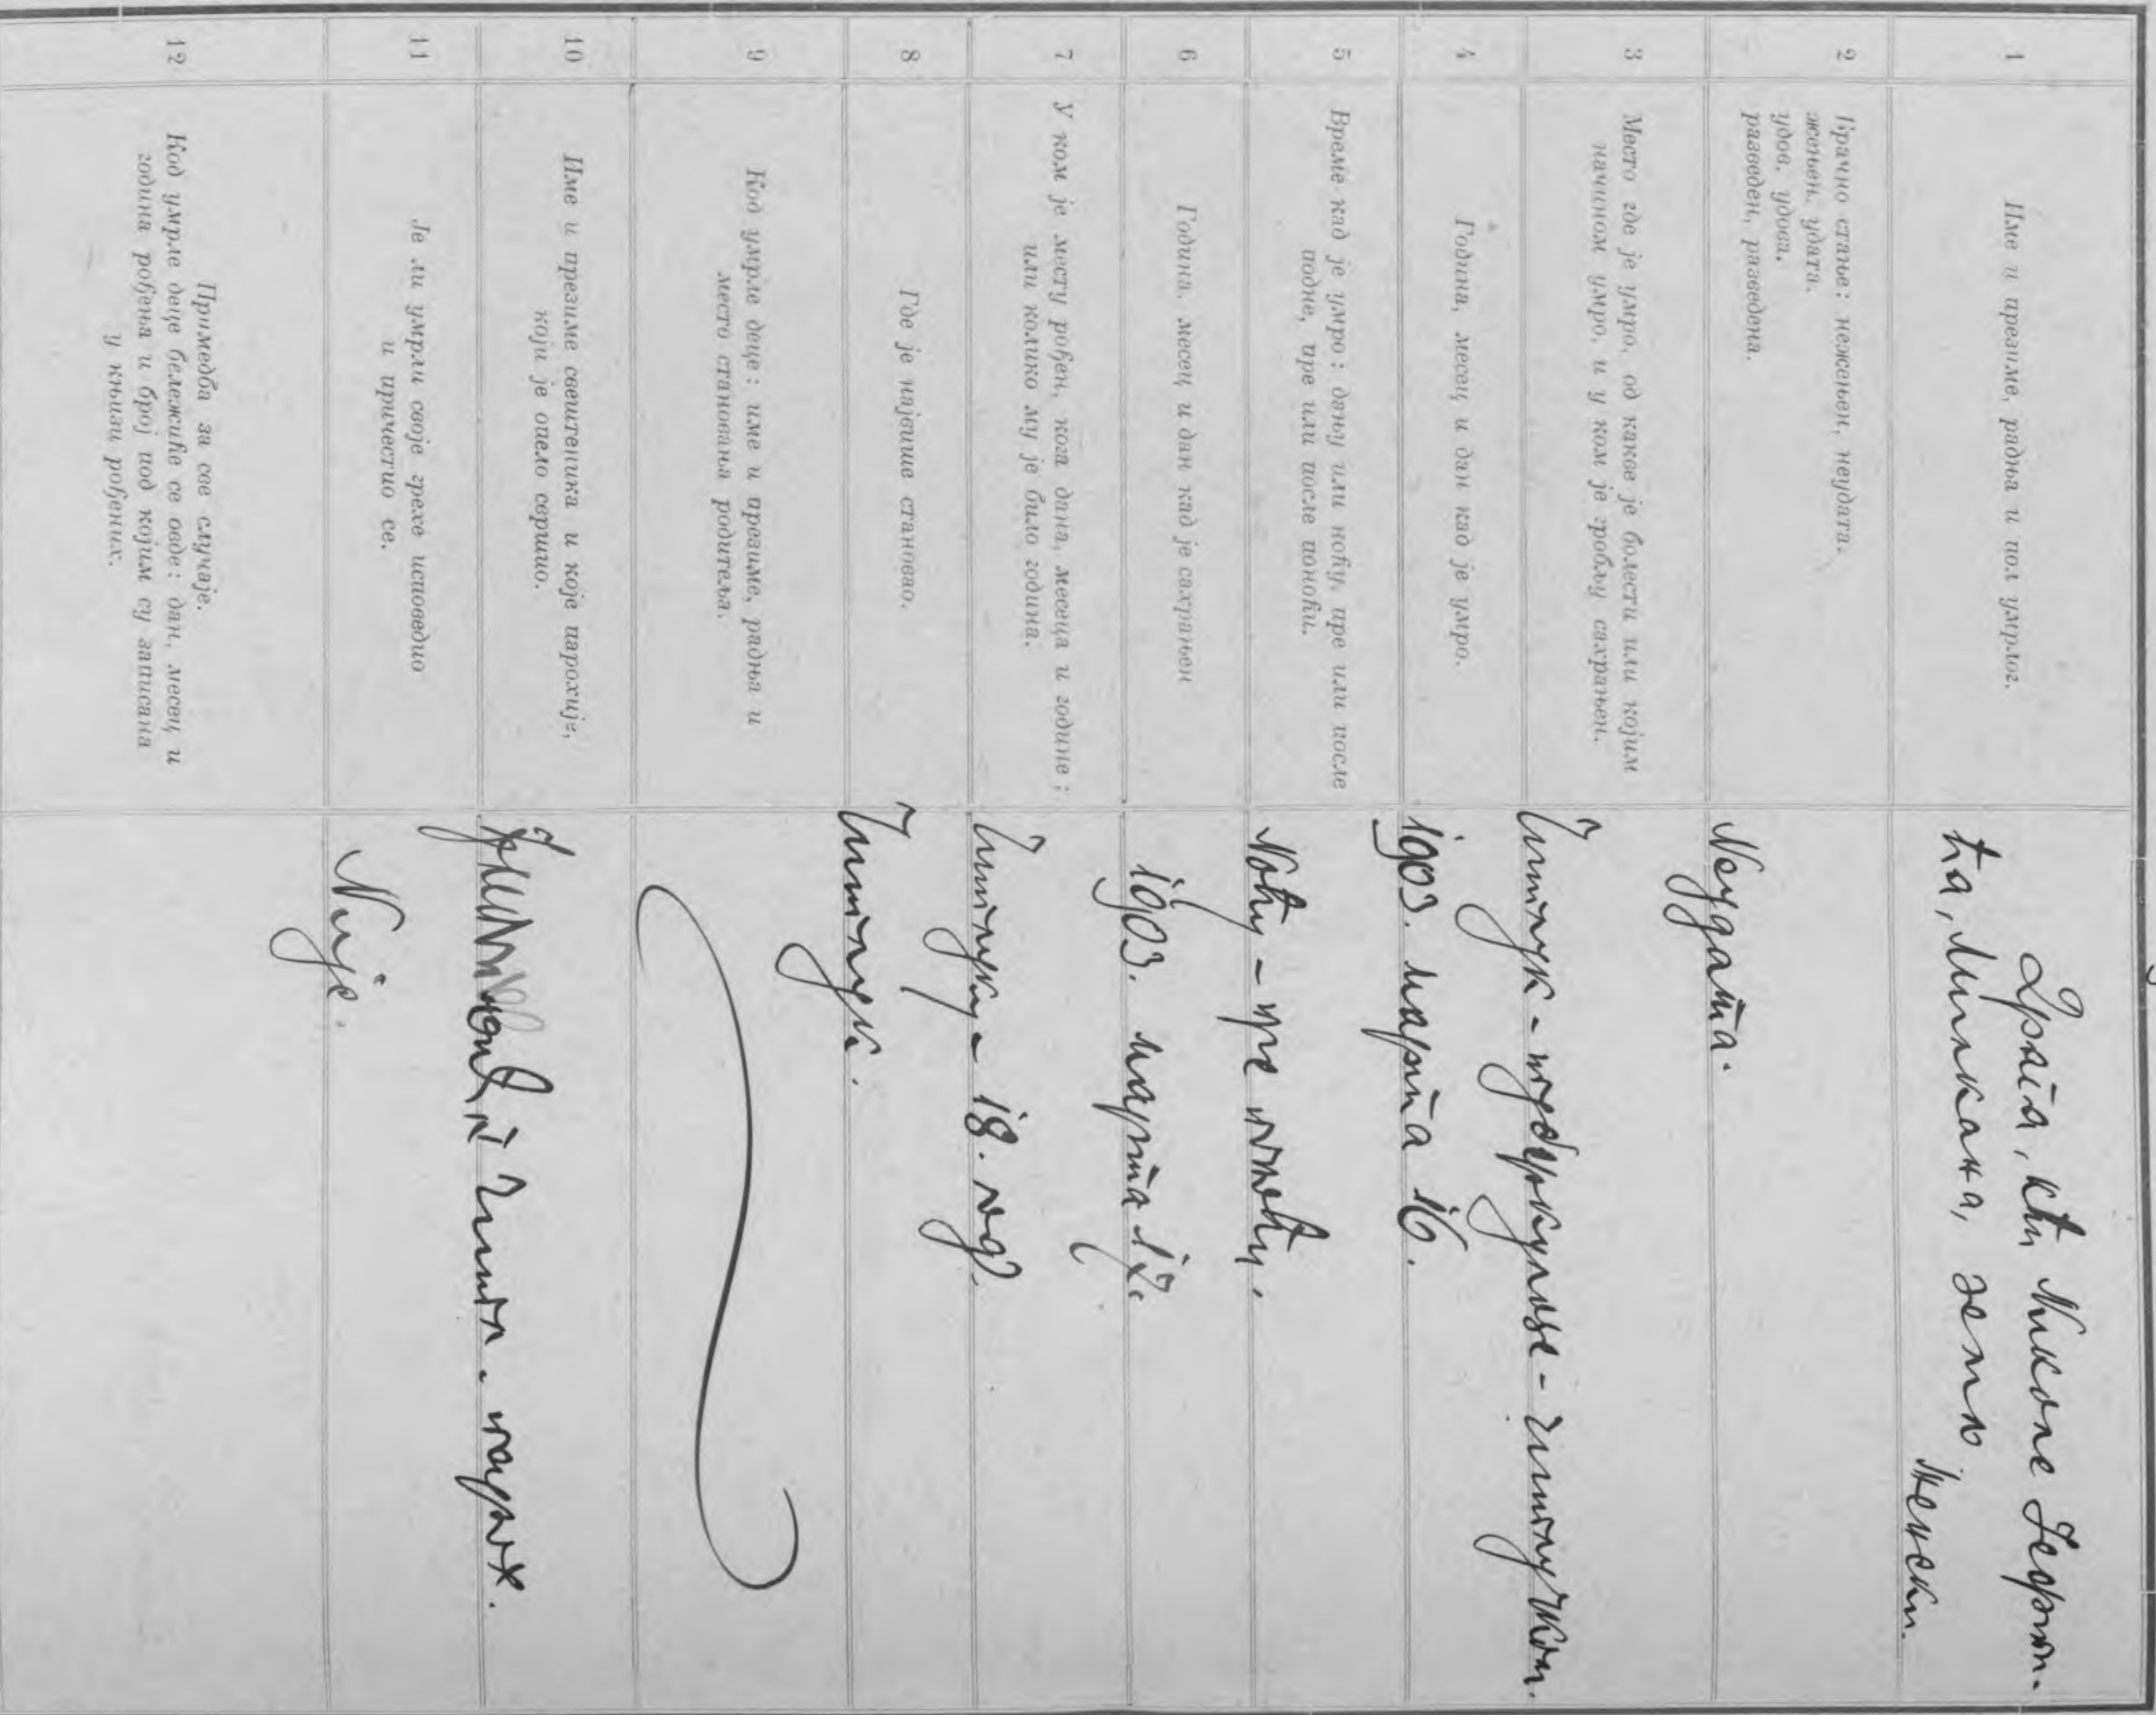 1
Име и презиме, радња и пол умрлог.
кћи Николе
ћа, Милкана, земљ
Женски.
2
Брачно стање: нежењен, неудата.
жењен, удата.
удов, удова.
разведен, разведена.
Неудата.
3
Место где је умро, од какве је болести или којим
начином умро, и у ком је гробљу сахрањен.
4
Година, месец и дан кад је умро.
1903. марта 16.
5
Време кад је умро: дању или ноћу, пре или после
подне, пре или после поноћи.
Ноћу – пре поноћи.
6
Година, месец и дан кад је сахрањен
1903. марта 17.
7
У ком је месту рођен, кога дана, месеца и године;
или колико му је било година.
18. год.
8
Где је највише становао.
9
Код умрле деце: име и презиме, радња и
место становања родитеља.
10
Име и презиме свештеника и које парохије,
који је опело свршио.
парох.
11
Је ли умрли своје грехе исповедио
и причестио се.
Није.
12
Примедба за све случаје.
Код умрле деце бележиће се овде: дан, месец и
година рођења и број под којим су записана
у књизи рођених.